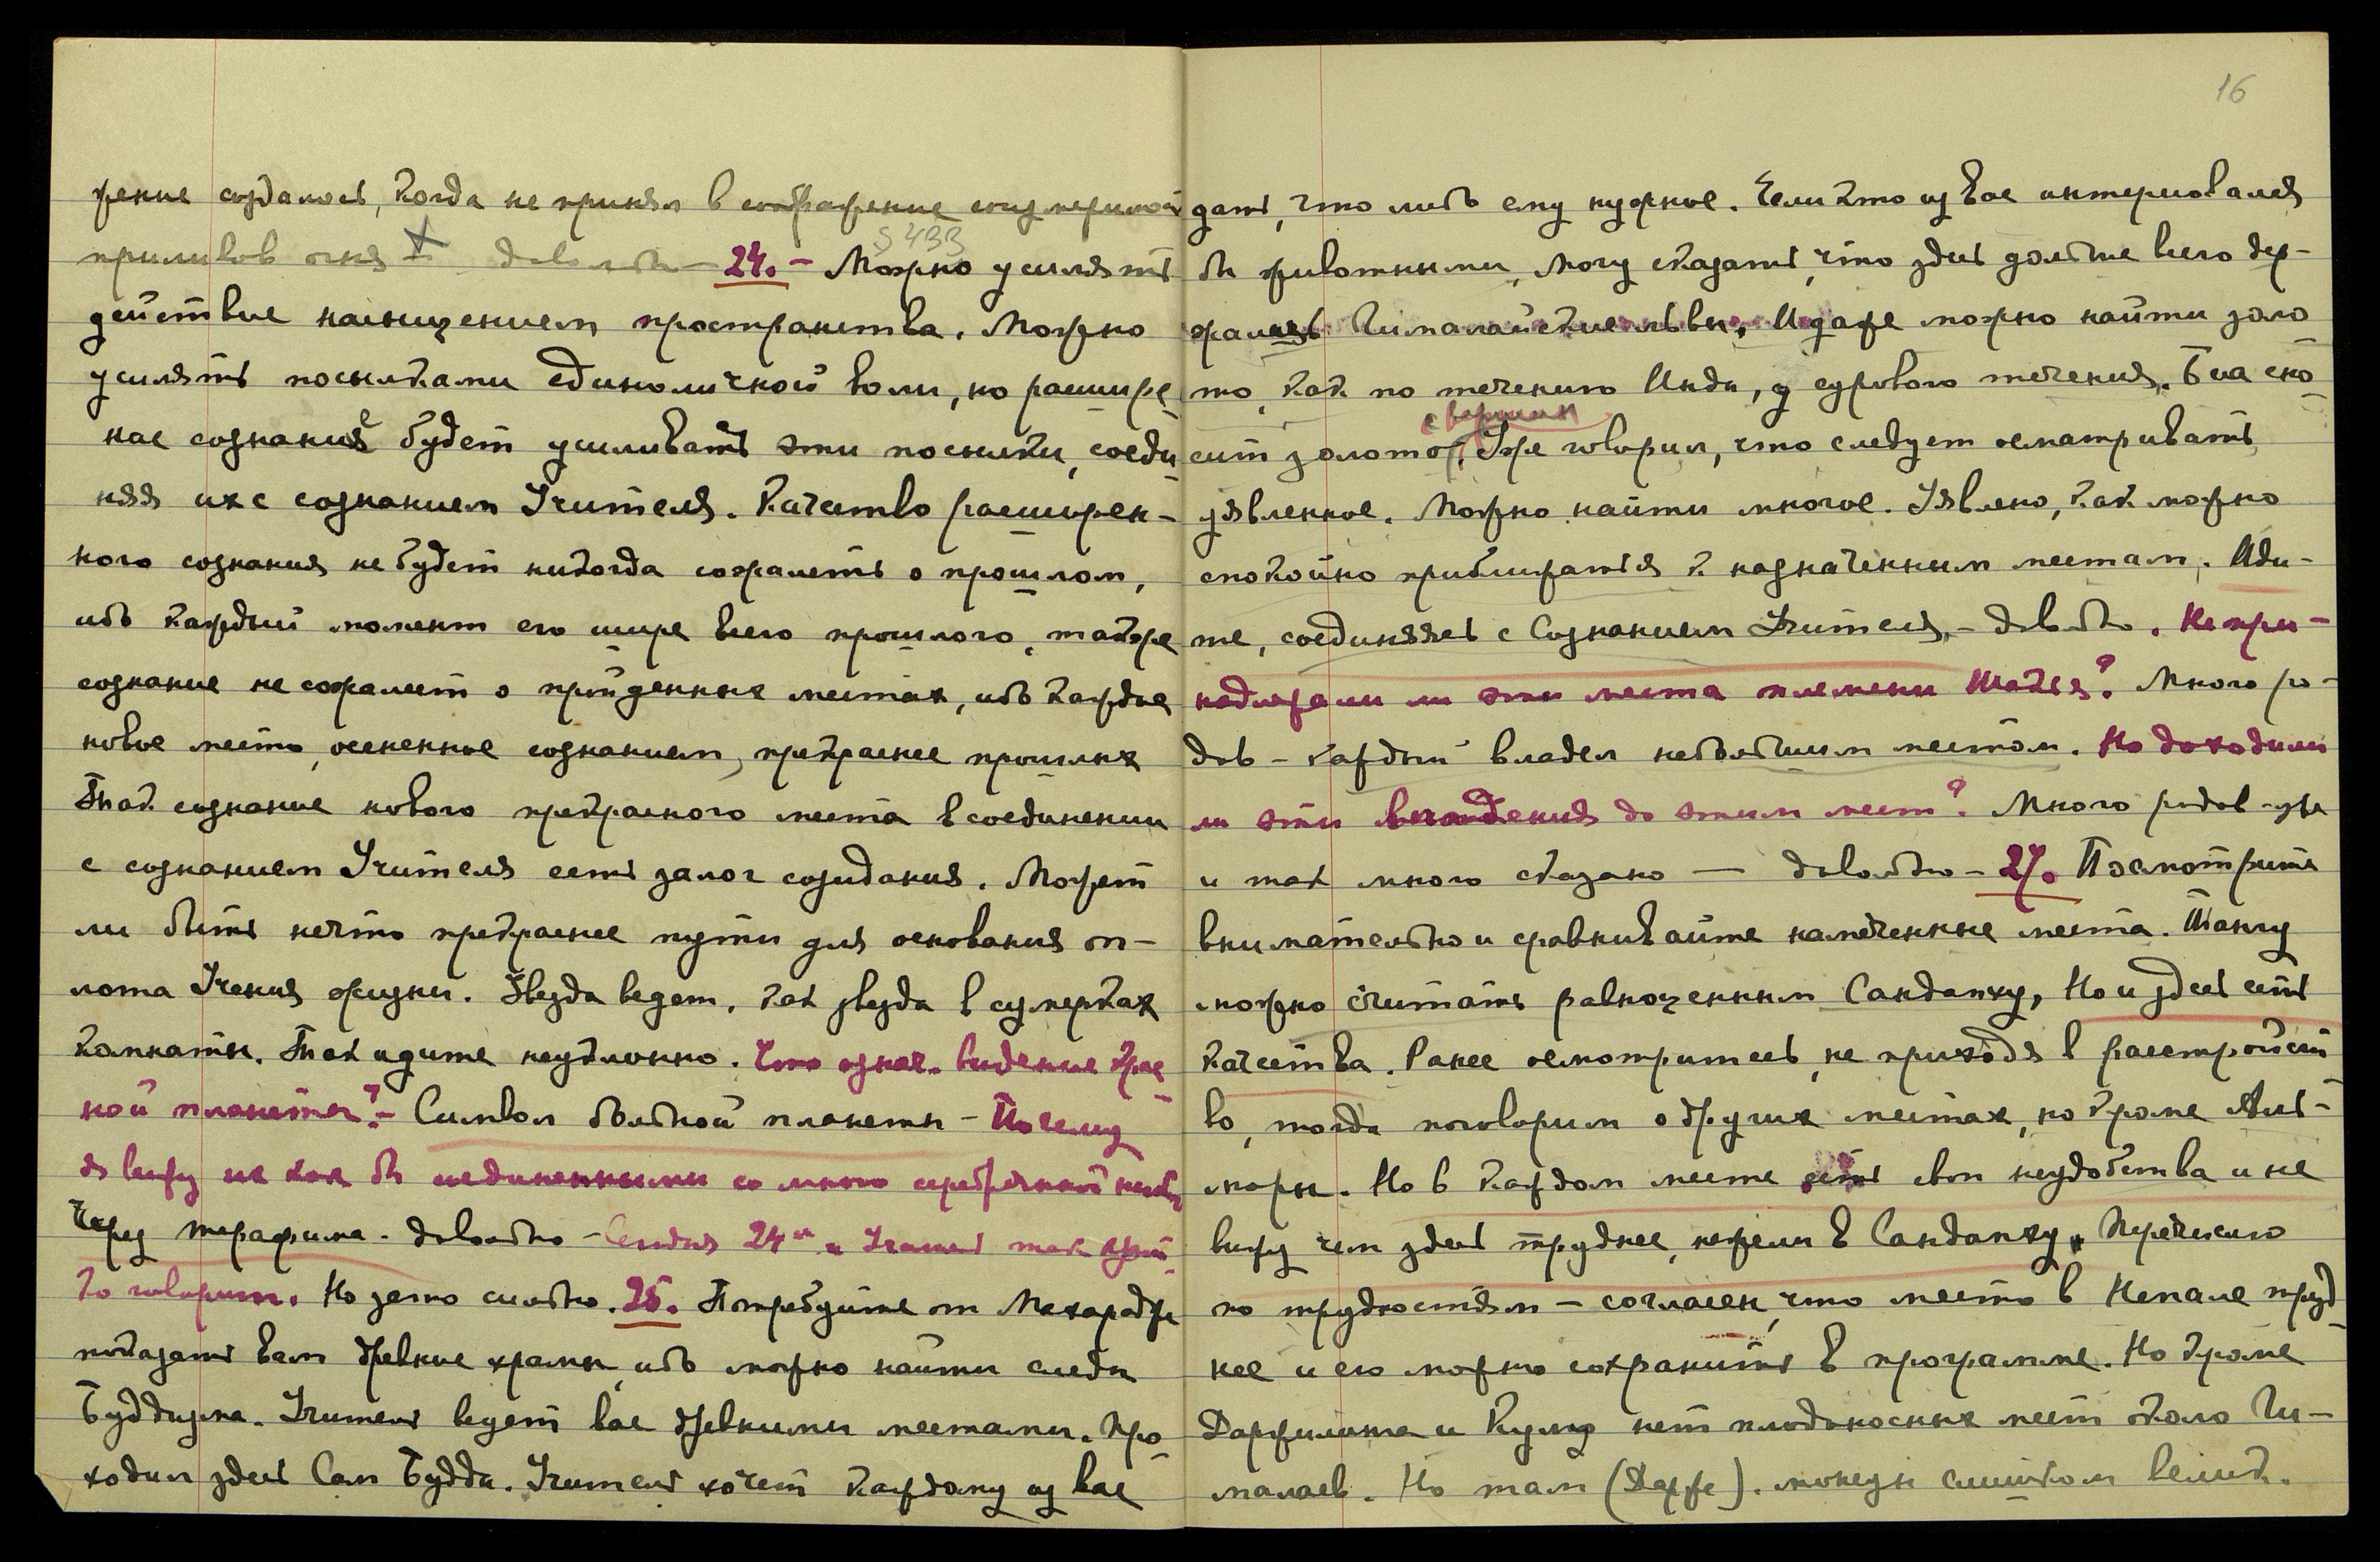 16
рение создалось, когда не принял в соображение
приливов огня + довольно — 24. — Можно усилять
§ 433
действие насыщением пространства. Можно
усилять посылками единоличной воли, но расшире
ное сознание будет усиливать эти посылки, соеди
няя их с сознанием Учителя. Качество расширен-
ного сознания не будет никогда сожалеть о прошлом,
ибо каждый момент его шире всего прошлого, также
сознание не сожалеет о пройденных местах, ибо каждое
новое место, осененное сознанием, прекраснее прошлых
Так сознание нового прекрасного места в соединении
с сознанием Учителя есть залог созидания. Может
ли быть нечто прекраснее пути для основания оп-
лота Учения жизни. Звезда ведет, как звезда в сумерках
комнаты. Так идите неуклонно. Что означ. видение крас
ной планеты? — Символ больной планеты — Почему
я вижу их как бы соединенными со мною серебряной нитью
Через терафима. довольно — Сегодня 24ое и Учитель так крат
ко говорит. Но зато сильно. 25. Потребуйте от Махараджи
показать вам древние храмы, ибо можно найти следы
Буддизма. Учитель ведет вас древними местами. Про
ходил здесь Сам Будда. Учитель хочет каждому из вас
дать, что либо ему нужное. Если кто из вас интересовался
бы животными, могу сказать, что здесь дольше всего дер-
жались Гималайские львы. И даже можно найти золо
то, как по течению Инда, у сурового течения. Биа сно
с вершин
сит золото. Уже говорил, что следует осматривать
уявленное. Можно найти многое. Уявлено, как можно
спокойно приближаться к назначенным местам. Иди-
те, соединяясь с Сознанием Учителя, — довольно. Не при-
надлежали ли эти места племени Шакья? Много ро-
дов — каждый владел небольшим местом. Но доходили
ли эти владения до этих мест? Много родов — уже
и так много сказано — довольно — 27. Посмотрите
внимательно и сравнивайте намеченные места.
можно считать равноценным Сандакху, Но и здесь есть
качества. Ранее осмотритесь, не приходя в расстройст
во, тогда поговорим о других местах, но кроме Аль-
моры. Но в каждом месте есть свои неудобства и не
вижу чем здесь труднее, нежели в Сандакху. Перечислю
по трудностям — согласен, что место в Непале труд
нее и его можно сохранить в программе. Но кроме
Дарджилинга и Кулу нет плодоносных мест около Ги-
малаев. Но там (Дардж). монсун слишком велик.